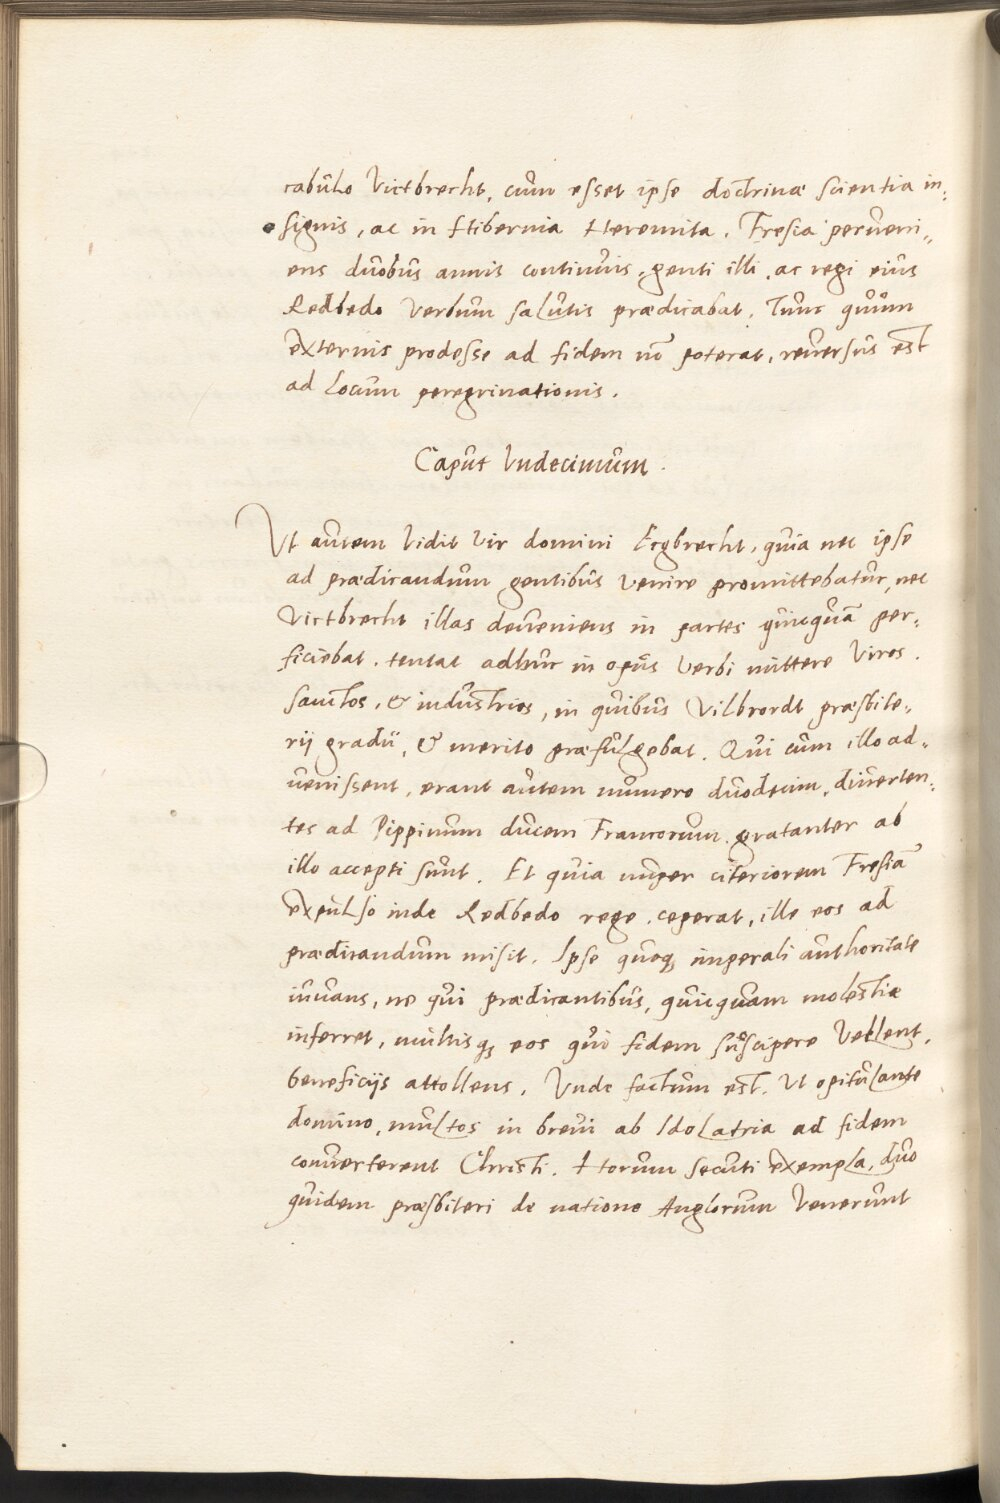 cabulo Victbrecht, cum esset ipse doctrinæ scientia in-
signis, ac in Hibernia Heremita. Fresia perveni-
ens duobus annis continuis, genti illi, ac regi eius
Redbedo verbum salutis prædicabat. Tunc quum
externis prodesse ad fidem nō poterat, reversus est
ad locum peregrinationis.
Caput Vndecimum.
Vt autem vidit vir domini Ecgbrecht, quia nec ipse
ad prædicandum gentibus venire promittebatur, nec
Victbrecht illas deveniens in partes quicquā per-
ficiebat, tentat adhuc in opus verbi mittere viros
sanctos, & industrios, in quibus Vilbrordt præsbite-
rij gradu, & merito præfulgebat. Qui cum illo ad-
venissent, erant autem numero duodecim, diverten-
tes ad Pippinum ducem Francorum, gratanter ab
illo accepti sunt. Et quia nuper citeriorem Fresiā
expulso inde Redbedo rege, ceperat, ille eos ad
prædicandum misit. Ipse quoq; imperali authoritate
iuvans, ne qui prædicantibus, quicquam molestiæ
inferret, multisq; eos qui fidem suscipere vellent,
beneficijs attollens. Vnde factum est, ut opitulante
domino, multos in brevi ab Idolatria ad fidem
converterent Christi. Horum secuti exempla, duo
quidem præsbiteri de natione Anglorum venerunt